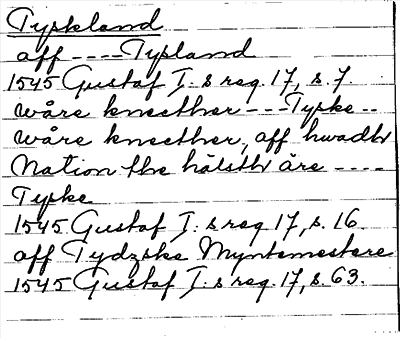 Tyskland
aff ---- Tysland
1545 Gustaf I:s reg. 17, s. 7.
wåre knecther --- Tyske --
wåre knecther, aff hwadh
Nation the hälsth äre ----
Tyske
1545 Gustaf I:s reg. 17, s. 16.
aff Tydzske Myntemestere
1545 Gustaf I:s reg. 17, s. 63.